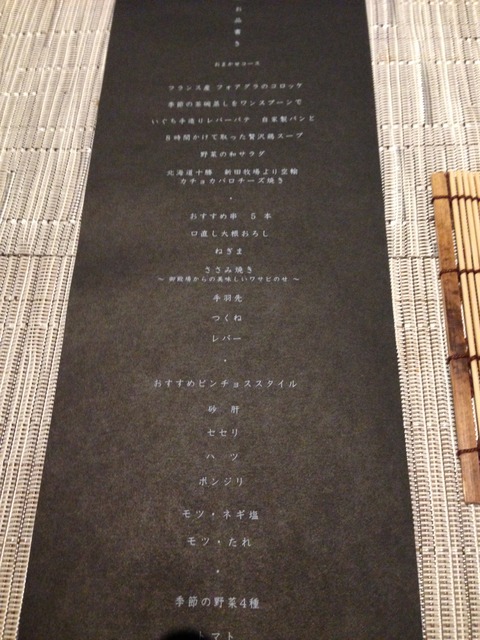 お品書き
おまかせコース
フランス産 フォアグラのコロッケ
季節の茶碗蒸しをワンスプーンで
いぐち手造りレバーパテ 自家製パンと
8時間かけて取った贅沢鶏スープ
野菜の和サラダ
北海道十勝 新田牧場より空輸
カチョカバロチーズ焼き
・
おすすめ串 5本
口直し大根おろし
ねぎま
ささみ焼き
〜 御殿場からの美味しいワサビのせ 〜
手羽先
つくね
レバー
・
おすすめピンチョススタイル
砂肝
セセリ
ハツ
ボンジリ
モツ・ネギ塩
モツ・たれ
・
季節の野菜4種
トマト